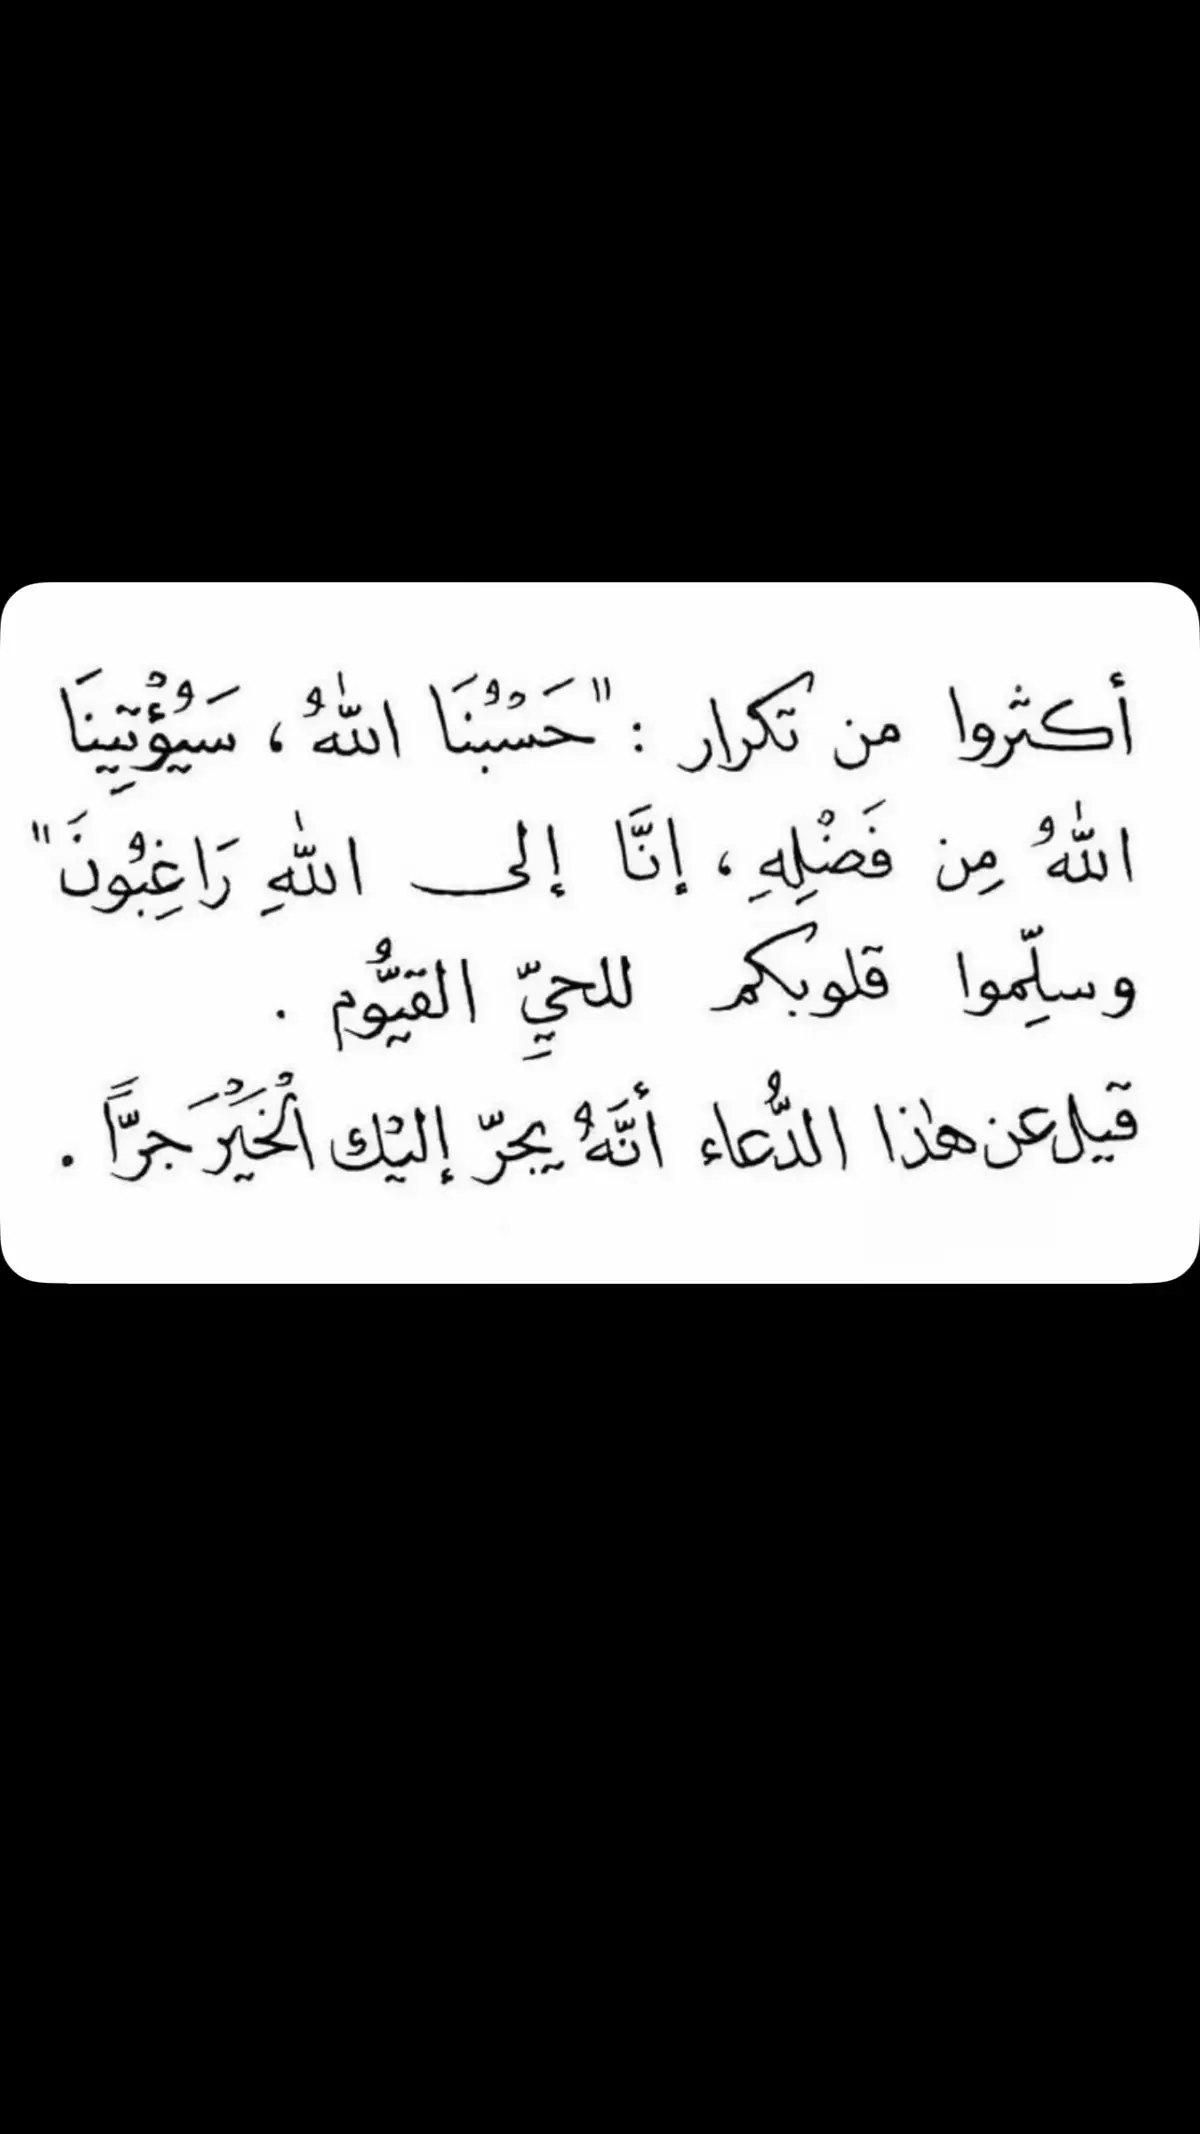 أكثروا من تكرار : "حَسْبُنَا اللّٰهُ ، سَيُؤْتِينَا
اللّٰهُ مِن فَضْلِهِ ، إنَّا إلى اللّٰهِ رَاغِبُونَ"
وسلِّموا قلوبكم للحيِّ القيُّوم .
قيل عن هٰذا الدُّعاء أنَّهُ يجرّ إليْك الْخَيْرَ جرًّا .